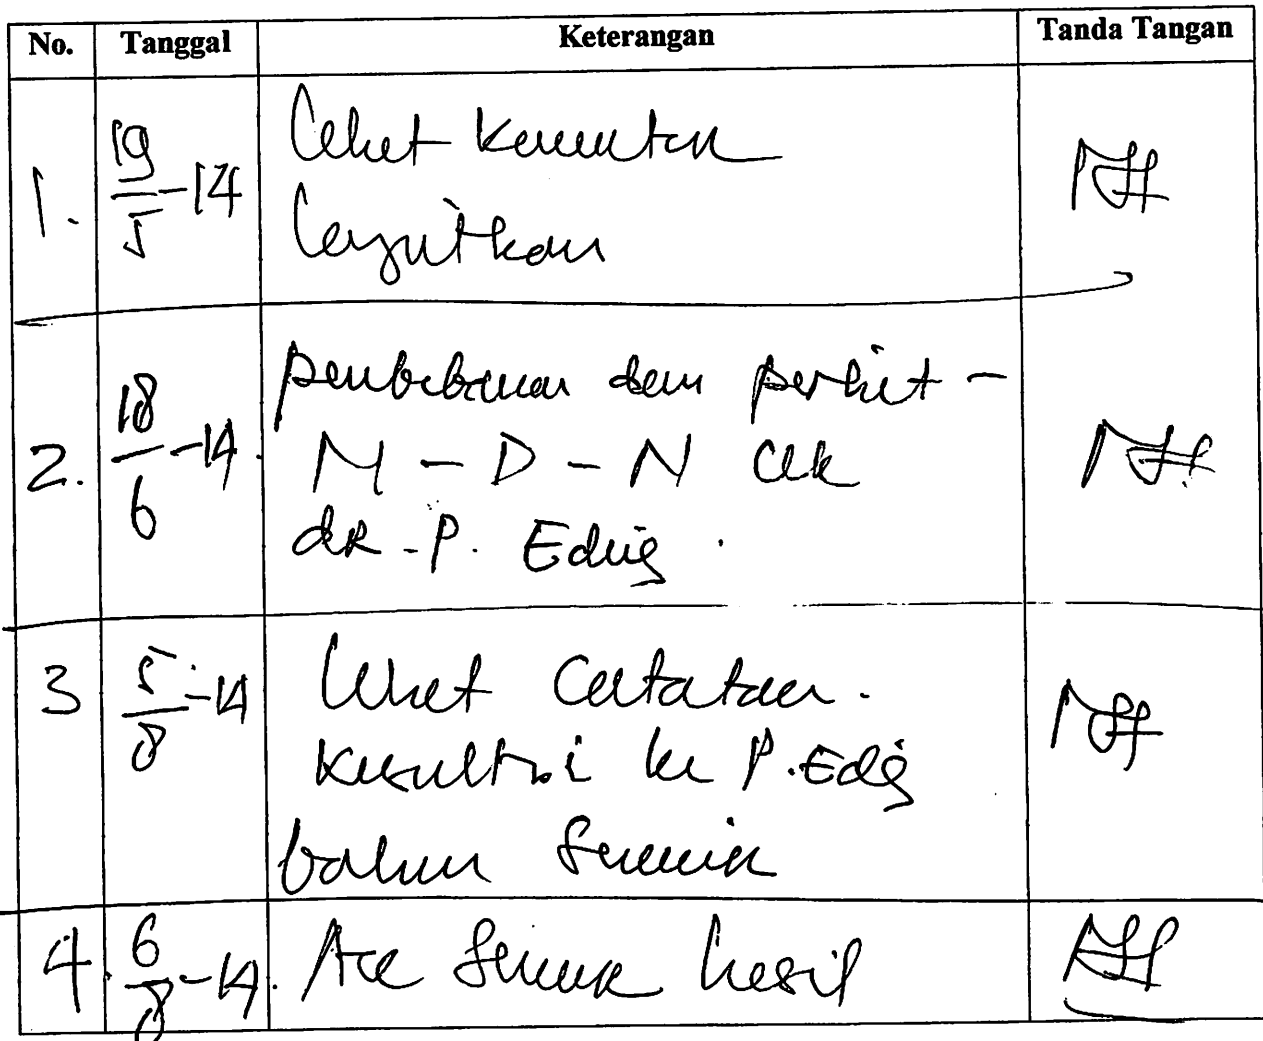 No. Tanggal Keterangan Tanda Tangan
1. 19/5-14 lihat
lanjutkan
2. 18/6-14 pembebanan dan perhit-
M - D - N cek
P.
3 5/8-14 lihat catatan.
konsultasi ke P.
bahan seminar
4. 6/8-14. Acc seminar hasil